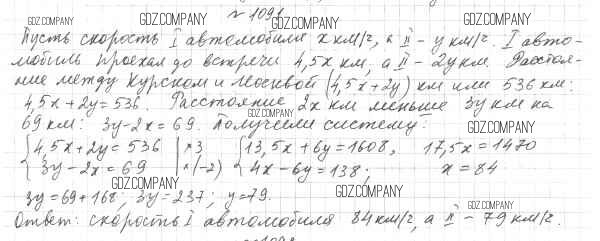 № 1091
Пусть скорость I автомобиля x км/г, а II – y км/г. I авто-
мобиль проехал до встречи 4,5x км, а II – 2y км. Расстоя-
ние между Курском и Москвой (4,5x+2y) км или 536 км:
4,5x+2y=536. Расстояние 2x км меньше 3y км на
69 км: 3y-2x=69. Получаем систему:
{4,5x+2y=536 |×3 {13,5x+6y=1608, 17,5x=1470
{3y-2x=69 |×(-2) {4x-6y=-138; x=84
3y=69+168; 3y=237; y=79.
Ответ: скорость I автомобиля 84 км/г, а II – 79 км/г.
GDZ.COMPANY
GDZ.COMPANY
GDZ.COMPANY
GDZ.COMPANY
GDZ.COMPANY
GDZ.COMPANY
GDZ.COMPANY
GDZ.COMPANY
GDZ.COMPANY
GDZ.COMPANY
GDZ.COMPANY